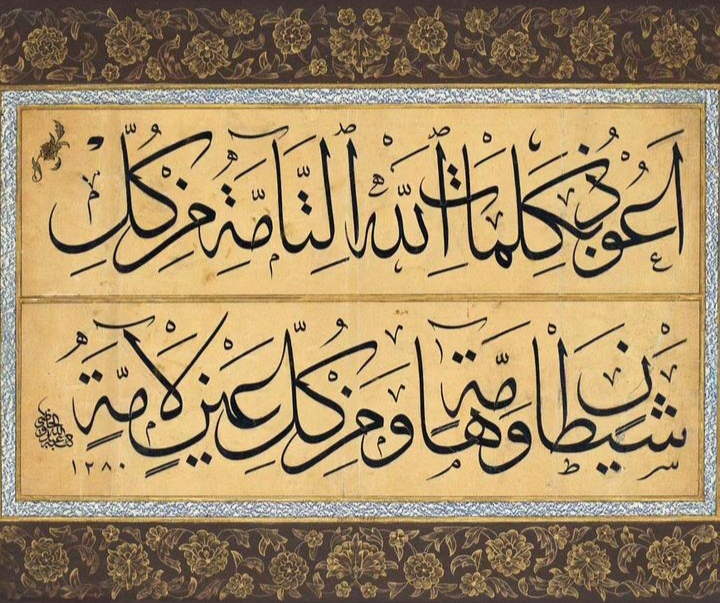 اَعُوذُ بِكَلِمَاتِ اللّٰهِ التَّامَّةِ مِنْ كُلِّ
شَيْطَانٍ وَهَامَّةٍ وَمِنْ كُلِّ عَيْنٍ لَامَّةٍ
١٢٨٠